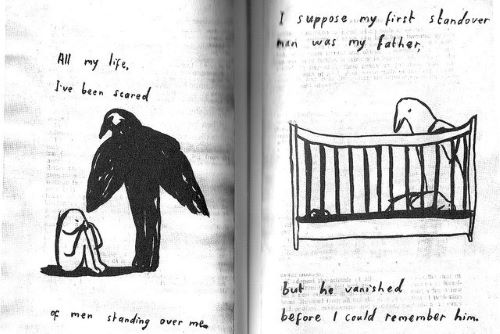 All my life,
I've been scared
of men standing over me.
I suppose my first standover
man was my father,
but he vanished
before I could remember him.